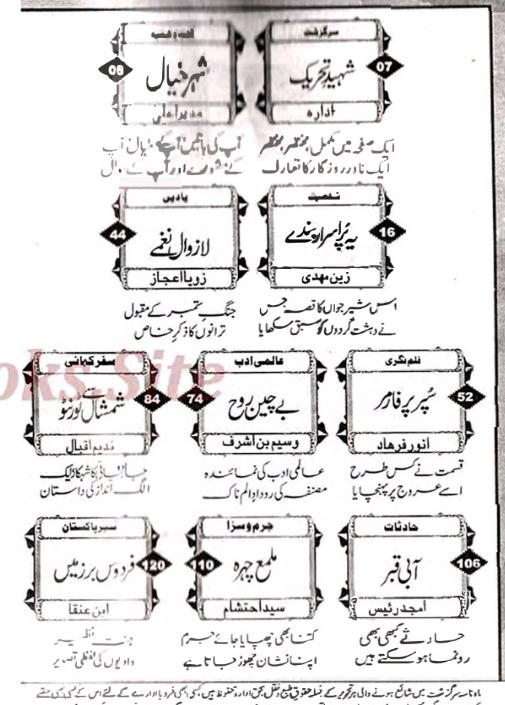 سرگزشت
شہیدِ تحریک
07
ادارہ
ایک صفحہ میں مکمل، مختصر مختصر
ایک نادر روزگار کا تعارف
شہر خیال
08
مدیر اعلیٰ
آپ کی باتیں آپ کے خیال آپ
کے مشورے اور آپ کے سوال
شخصیت
یہ پُراسرار بندے
16
زین مہدی
اس شیر جواں کا قصہ جس
نے دہشت گردوں کو سبق سکھایا
یادیں
لازوال نغمے
44
زویا اعجاز
جنگِ ستمبر کے مقبول
ترانوں کا ذکرِ خاص
فلم نگری
سُپر پرفارمر
52
انور فرہاد
قسمت نے کس طرح
اسے عروج پر پہنچایا
عالمی ادب
بے چین روح
74
وسیم بن اشرف
عالمی ادب کی نمائندہ
مصنفہ کی رودادِ الم ناک
سفر کہانی
شمشال سے ٹورنٹو
84
ندیم اقبال
الگ انداز کی داستان
حادثات
آبی قبر
106
امجد رئیس
حادثے کبھی بھی
رونما ہو سکتے ہیں
جرم و سزا
ملمع چہرہ
110
سید احتشام
کتنا بھی چھپایا جائے جرم
اپنا نشان چھوڑ جاتا ہے
سیر پاکستان
فردوس بر زمیں
120
ابن عنقا
جنت نظیر
وادیوں کی لفظی تصویر
ماہنامہ سرگزشت میں شائع ہونے والی ہر تحریر کے جملہ حقوق طبع و نقل بحق ادارہ محفوظ ہیں، کسی بھی فرد یا ادارے کے لئے اس کے کسی بھی حصے
oks.Site